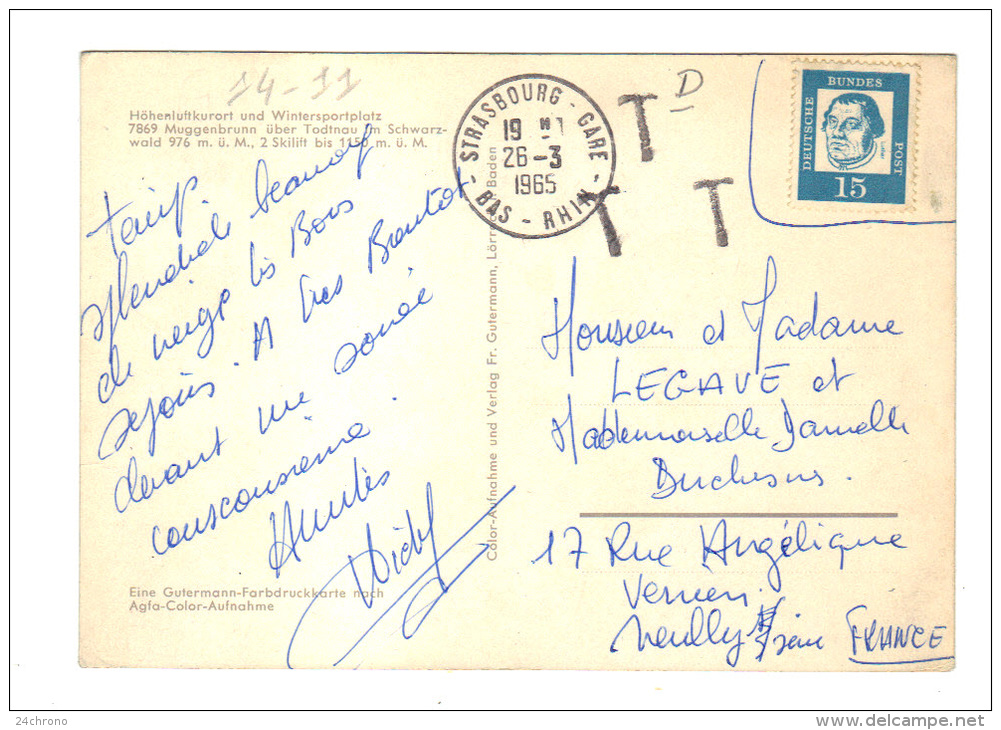 14-11
Höhenluftkurort und Wintersportplatz
7869 Muggenbrunn über Todtnau im Schwarz-
wald 976 m. ü. M., 2 Skilift bis 1150 m. ü. M.
splendide beaucoup
de neige bons
séjours. A
devant une soirée
Amitiés
Eine Gutermann-Farbdruckkarte nach
Agfa-Color-Aufnahme
Color-Aufnahme und Verlag Fr. Gutermann, Lörrach Baden
STRASBOURG-GARE
19
26-3
1965
BAS-RHIN
T
T T
D
DEUTSCHE BUNDES POST
15
Monsieur et Madame
LEGAVE et
Mademoiselle Danielle
Duchesne.
17 Rue Angélique
Verrien.
Neuilly s/Seine FRANCE
24chrono
www.delcampe.net